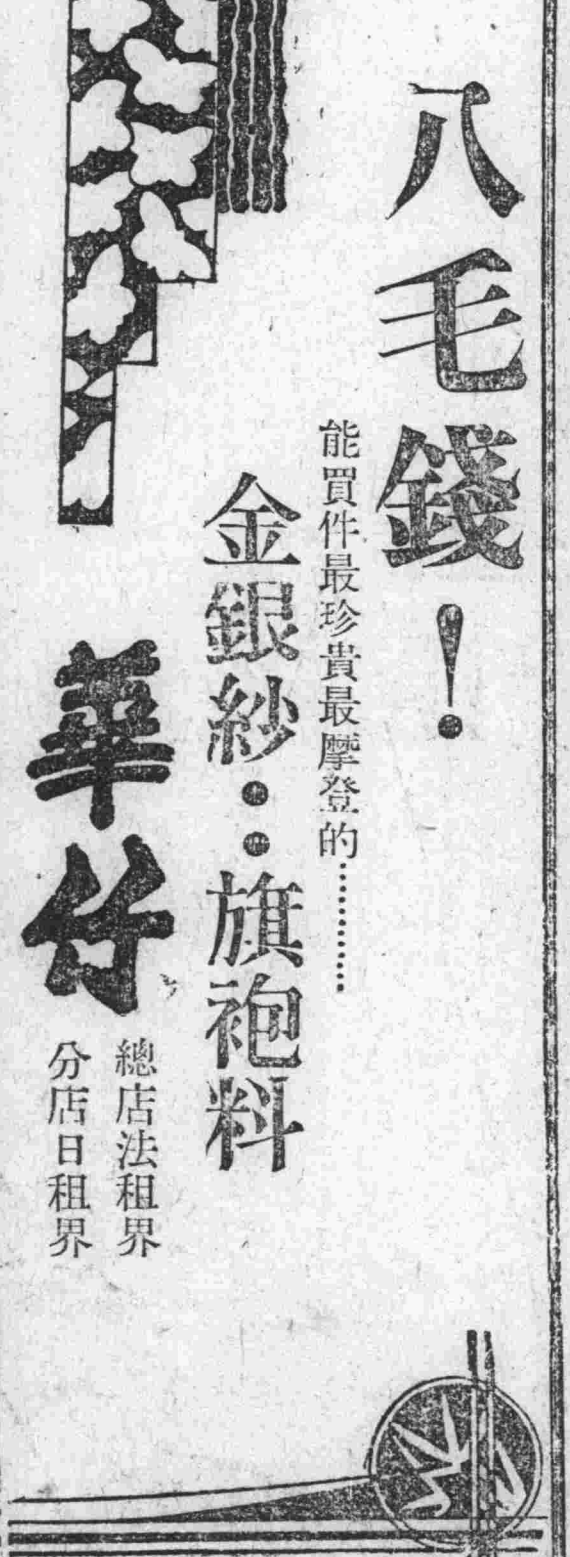 八毛錢！
能買件最珍貴最摩登的………
金銀紗：旗袍料
華竹
總店法租界
分店日租界